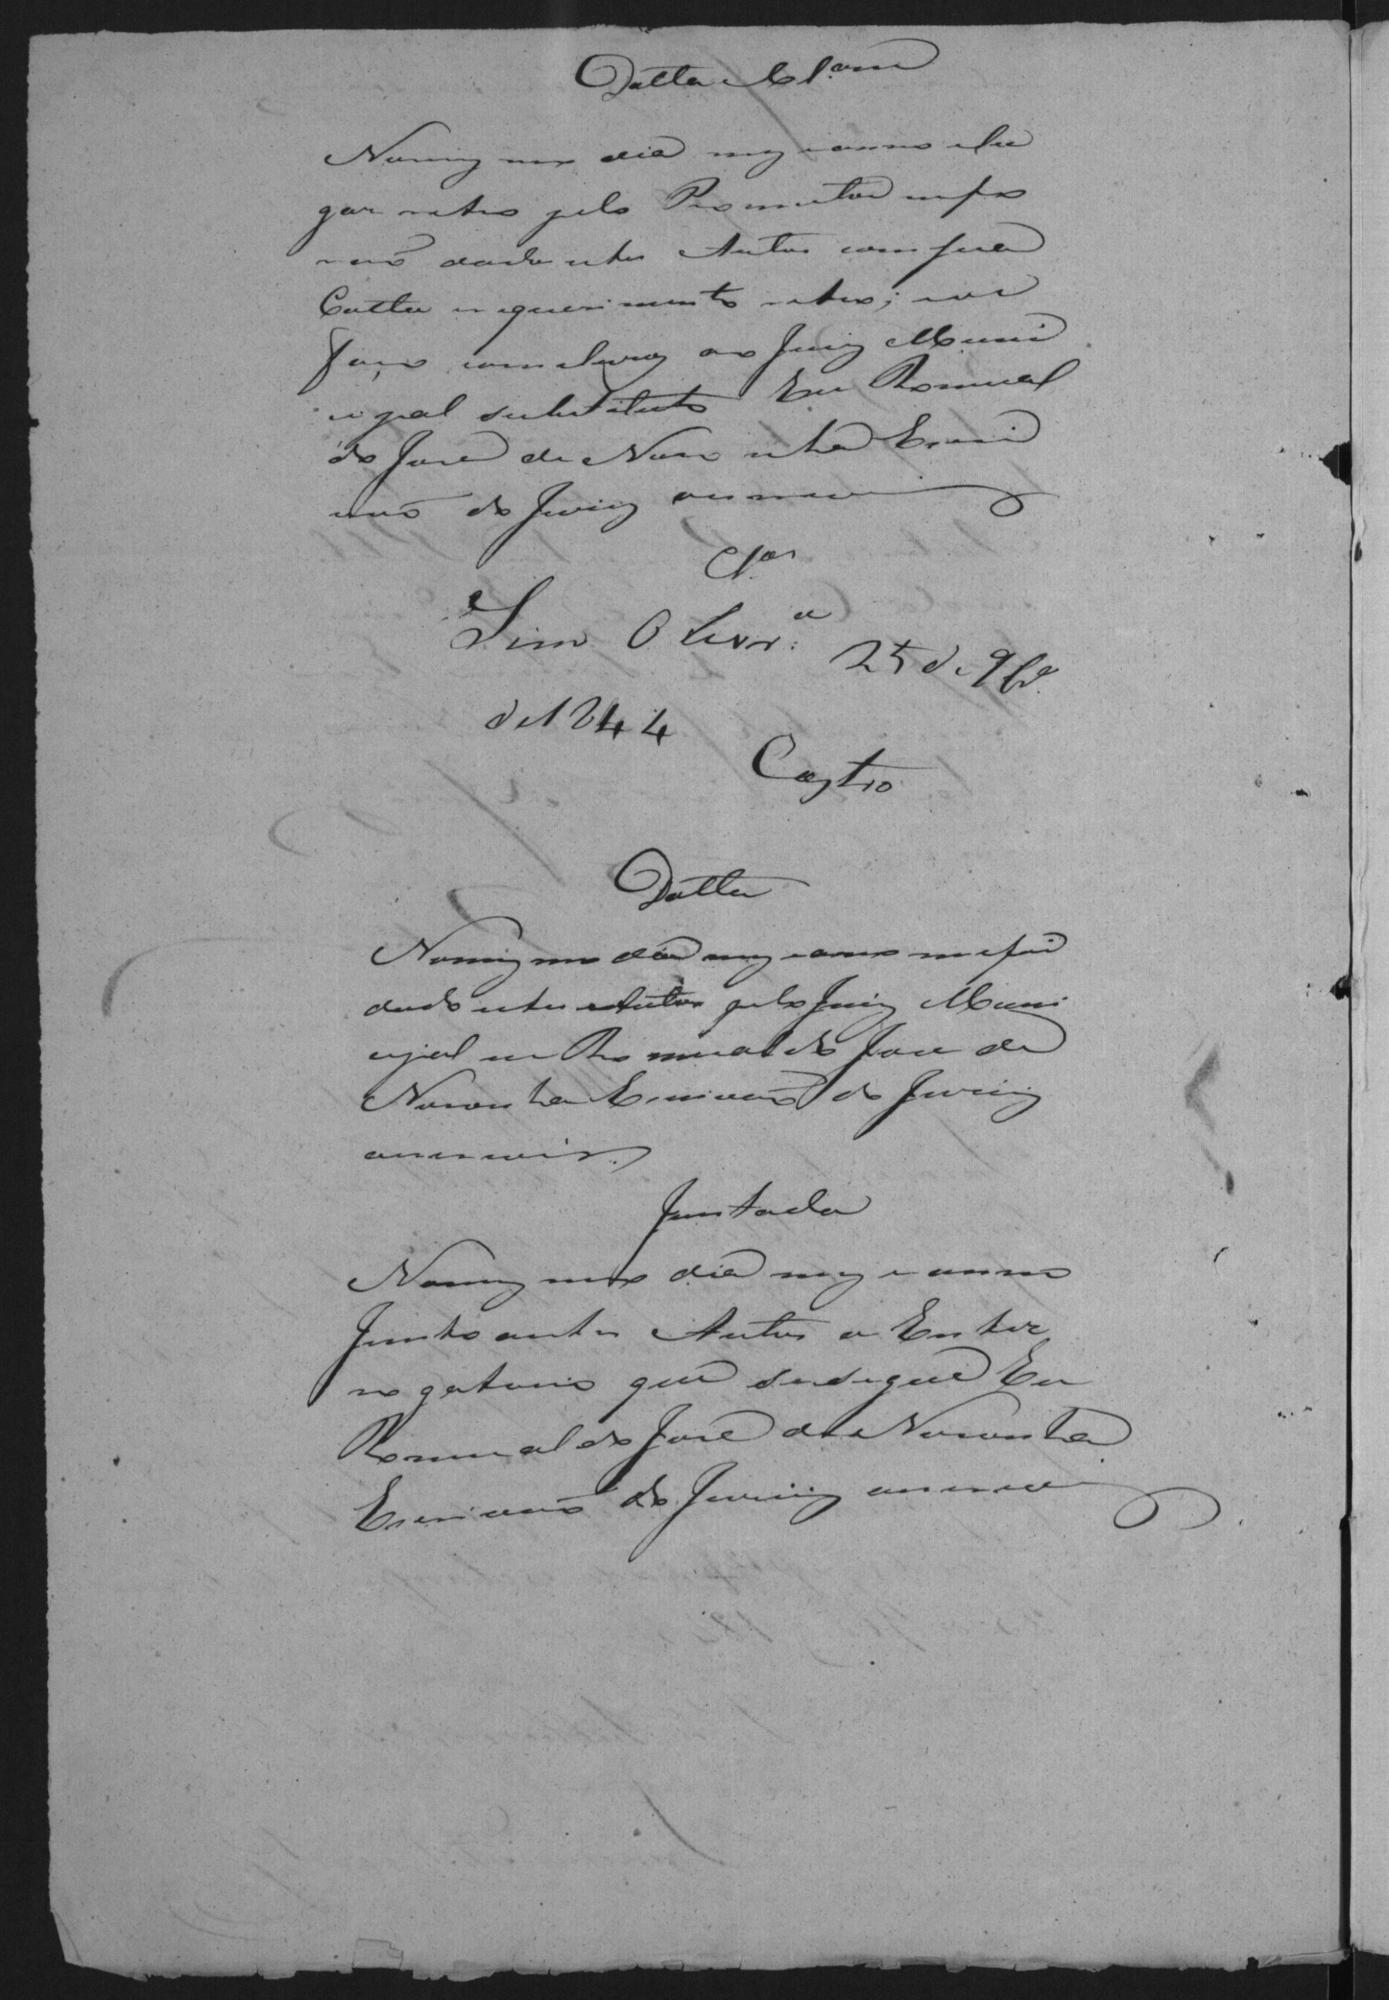 Datta e Cl.am
No mesmo dia mez e anno e lu
gar retro pelo Promotor me fo
rão dados estes Autos com sua
Cotta e requerimento retro; e os
faço concluzos ao Juiz Muni
cipal substituto Eu Romual
do José de Noronha Escri
vão do Juizo escrevi
Clos
Sim Olivr.a 25 de 9bro.
de 1844
Castro
Datta
No mesmo dia mez e anno me foi
dado estes Autos pelo Juiz Muni
cipal eu Romualdo José de
Noronha Escrivão do Juizo
escrevi.
Juntada
No mesmo dia mez e anno
Junto a estes Autos o Enter
rogatorio que se segue Eu
Romualdo José de Noronha
Escrivão do Juizo escrevi